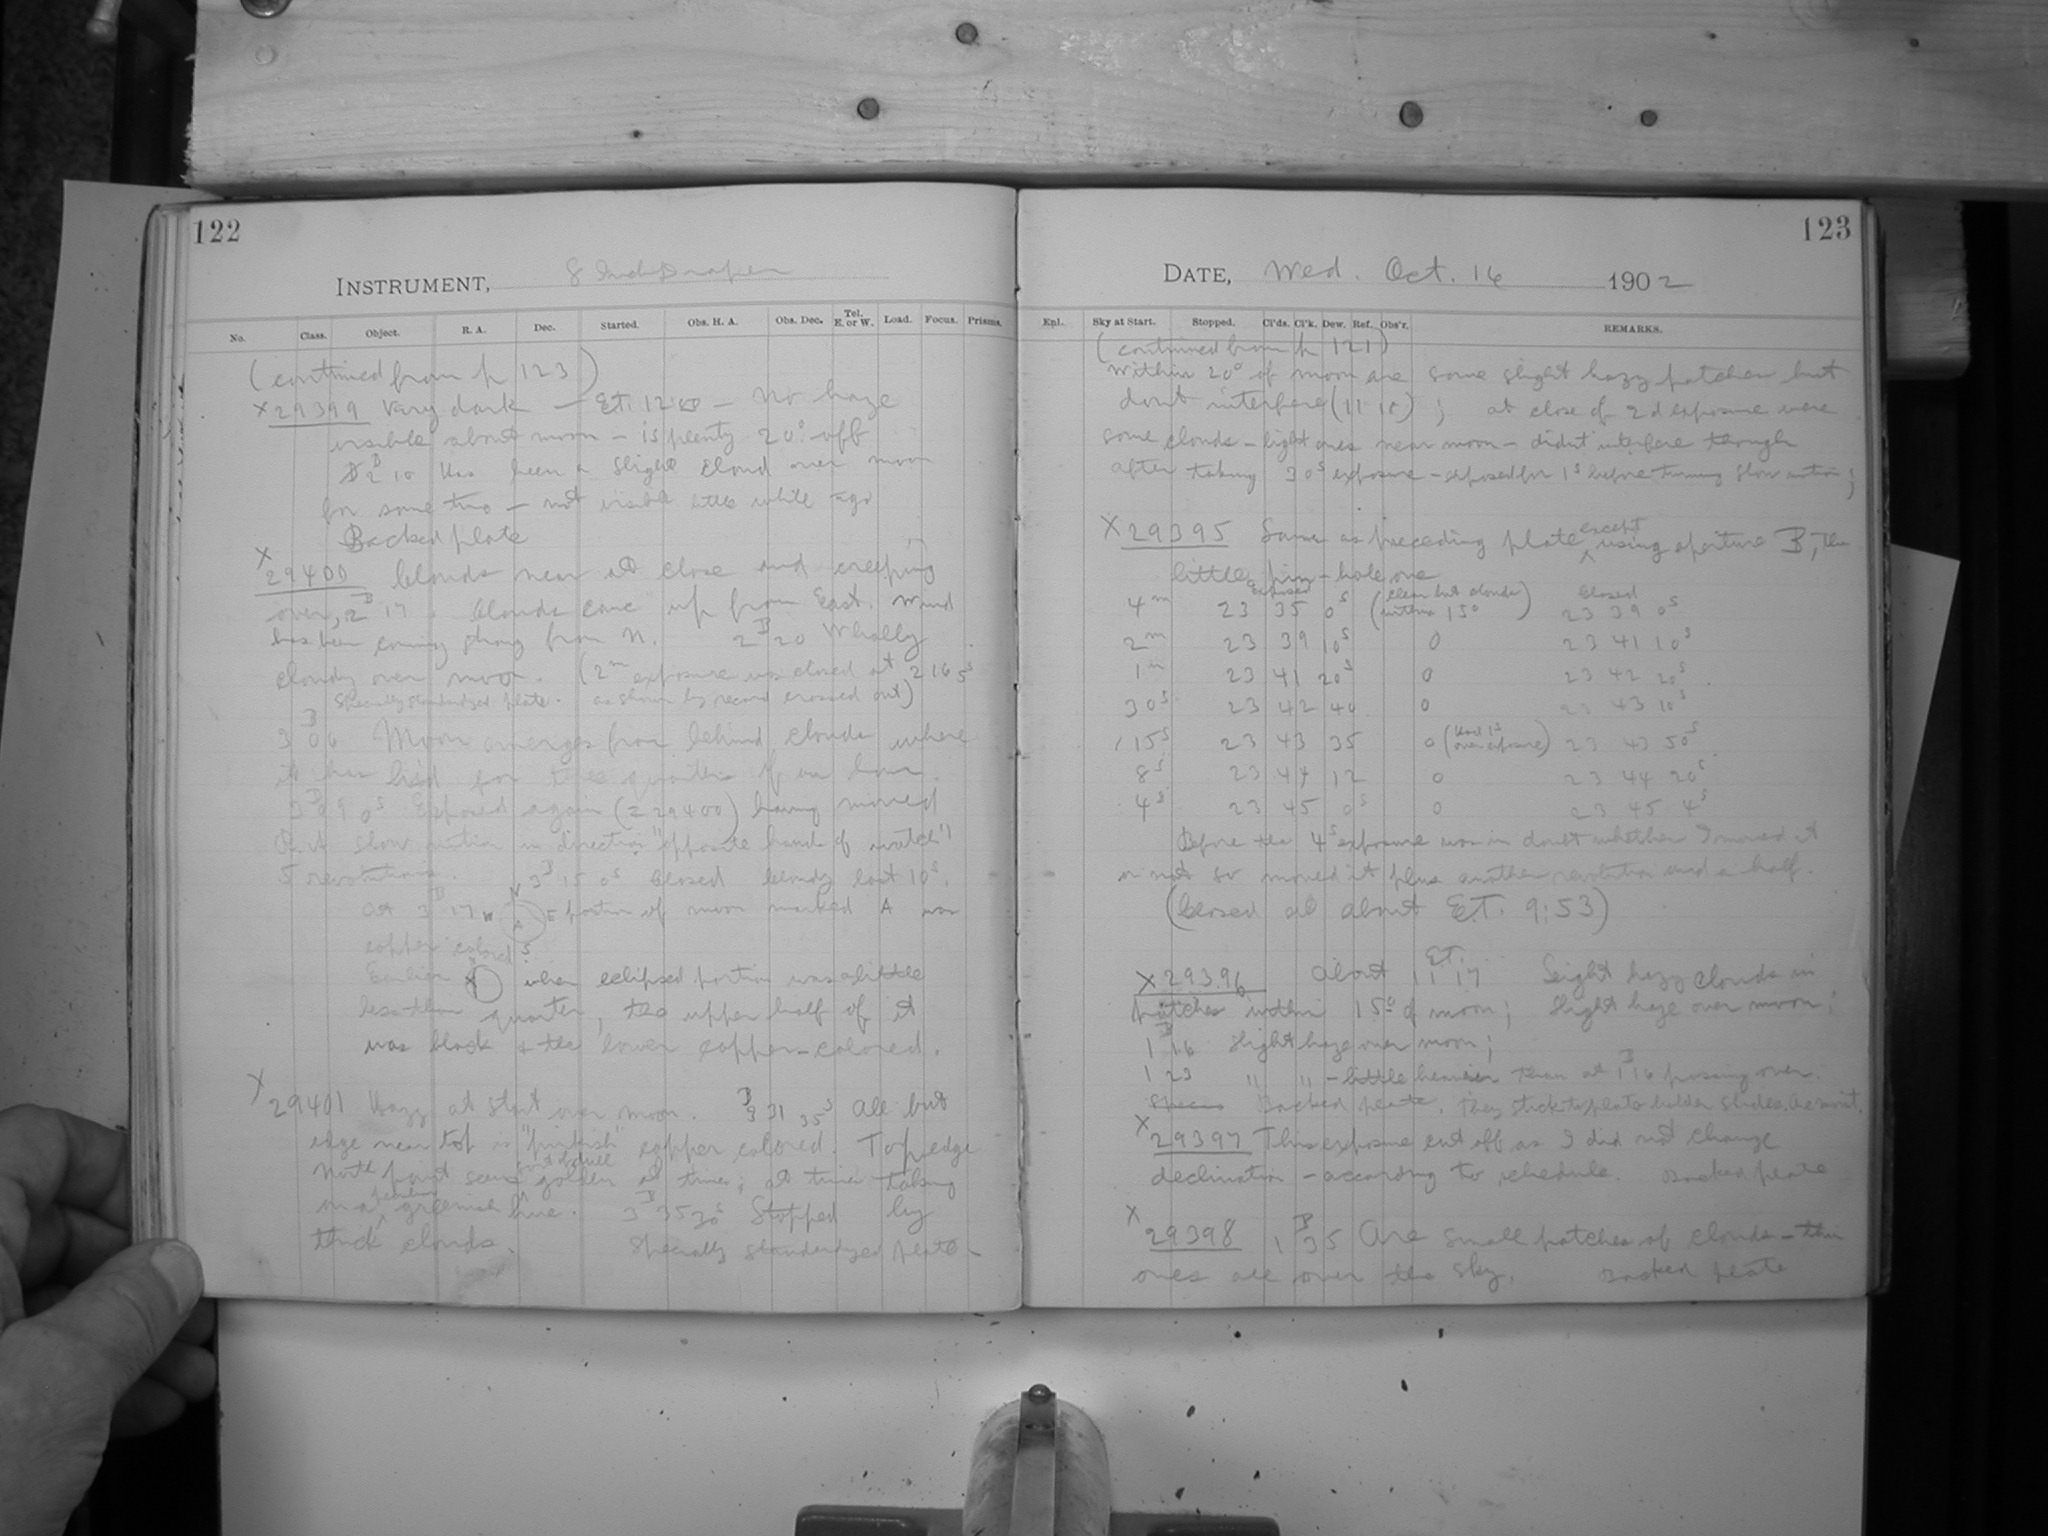 122
INSTRUMENT, 8 Inch Draper
No. Class. Object. R. A. Dec. Started. Obs. H. A. Obs. Dec. Tel. E. or W. Load. Focus. Prisms.
(continued from p 123)
X 29399 Very dark — E.T. 12 — No haze
visible about moon — is plenty 20° off
2 10 Has been a slight cloud over moon
for some time — not visible little while ago
Backed plate
X 29400 Clouds near at close and creeping
over, 2 17. Clouds came up from East. Wind
has been coming strong from N. 2 20 Wholly
cloudy over moon. (2m exposure was closed at 2 16 5s
Specially standardized plate. as shown by record crossed out)
3 06 Moon emerges from behind clouds where
it has hid for three quarters of an hour.
3 09 0s Exposed again (= 29400) having moved
R.A. slow motion in direction "opposite hands of watch"
5 revolutions. 3 15 0s Closed cloudy last 10s.
At 3 17 N W A E S portion of moon marked A was
copper colored
Earlier when eclipsed portion was a little
less than quarter, the upper half of it
was black & the lower copper-colored.
X 29401 Hazy at start over moon. 3 31 35s All but
edge near top is "pinkish" copper colored. Top edge
North point seems golden at times; at times taking
on a greenish hue. 3 35 30s Stopped by
thick clouds. Specially standardized plate
123
DATE, Wed. Oct. 16 1902
Enl. Sky at Start. Stopped. Cl'ds. Cl'k. Dew. Ref. Obs'r. REMARKS.
(continued from p 121)
Within 20° of moon are some slight hazy patches but
don't interfere (11 10); at close of 2d exposure were
some clouds — light ones near moon — didn't interfere though
after taking 30s exposure — exposed for 1s before turning slow motion;
X 29395 Same as preceding plate except using aperture B, the
little pin-hole one
exposed (clear but clouds within 15° closed
4m 23 35 0s ) 23 39 0s
2m 23 39 10s 0 23 41 10s
1m 23 41 20s 0 23 42 20s
30s 23 42 40 0 23 43 10s
15s 23 43 35 0 23 43 50s
8s 23 44 12 0 23 44 20s
4s 23 45 0s 0 23 45 4s
Before the 4s exposure was in doubt whether I moved it
or not so moved it plus another revolution and a half.
(Closed at about E.T. 9:53)
X 29396 About E.T. 11 17 Slight hazy clouds in
patches within 15° of moon; slight haze over moon;
1 16 slight haze over moon;
1 23 " " — little heavier than at 1 16 passing over.
Backed plate. They stick to plate holder slides.
X 29397 This exposure cut off as I did not change
declination — according to schedule. Backed plate
X 29398 1 35 Are small patches of clouds — thin
ones all over the sky. Backed plate